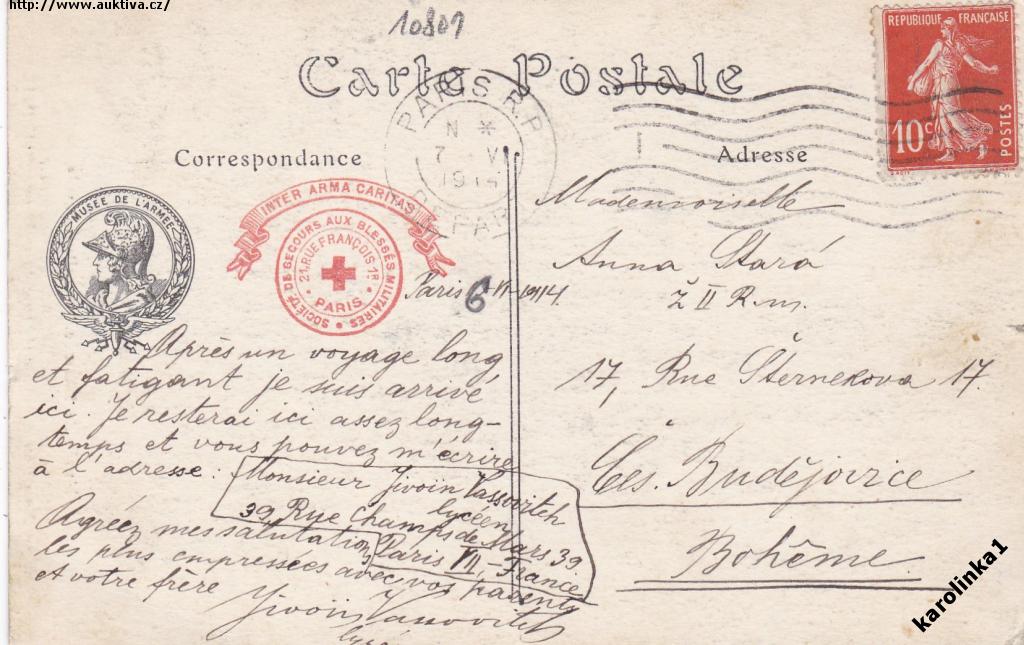 http://www.auktiva.cz/
10807
Carte Postale
RÉPUBLIQUE FRANÇAISE
10c
POSTES
PARIS R.P
N *
7 VI
1914
DEPART
Correspondance
Adresse
MUSÉE DE L'ARMÉE
INTER ARMA CARITAS
SOCIÉTÉ DE SECOURS AUX BLESSÉS MILITAIRES
21, RUE FRANÇOIS 1ER
PARIS
Paris 6 VI-1914
Après un voyage long
et fatigant je suis arrivé
ici. Je resterai ici assez long-
temps et vous pouvez m'écrire
à l'adresse:
Monsieur Jivoïn Vassovitch
lycéen
39 Rue Champs de Mars 39
Paris VII - France
Agréez mes salutations
les plus empressées avec vos parents
et votre frère
Jivoïn Vassovitch
Mademoiselle
Anna Stará
ž II R.
17, Rue Šternekova 17.
Čes. Budějovice
Bohême
karolinka1